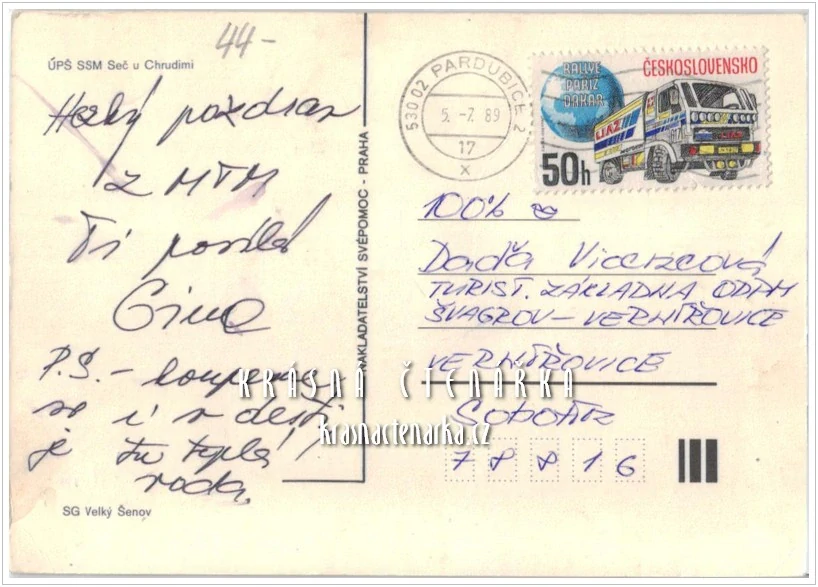 44-
ÚPŠ SSM Seč u Chrudimi
Hezký pozdrav
z MTM
Ti posílá
Gina
P.S. - koupeme
se i v dešti,
je tu teplá
voda.
SG Velký Šenov
NAKLADATELSTVÍ SVÉPOMOC - PRAHA
530 02 PARDUBICE 2
5. -7. 89
17
x
RALLYE
PAŘÍŽ
DAKAR
ČESKOSLOVENSKO
LIAZ
50h
100%
Daďa
TURIST. ZÁKLADNA ODPM
ŠVAGROV - VERNÍŘOVICE
VERNÍŘOVICE
Sobotín
78816
KRÁSNÁ ČTENÁŘKA
krasnactenarka.cz